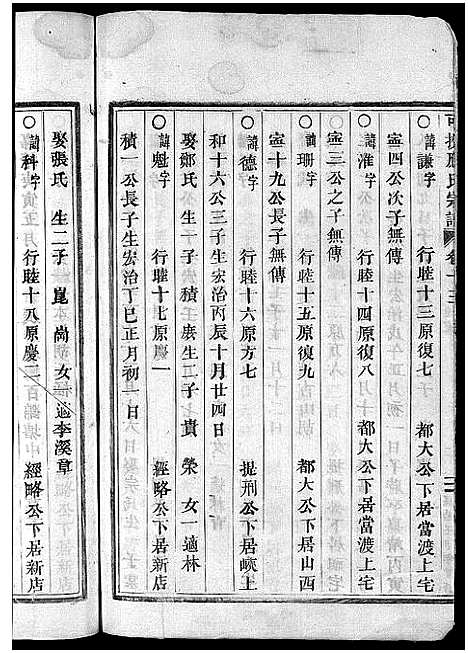 應氏宗譜 卷十三
○諱謙字 行睦十三原復七 都大公下居當渡上宅
寧四公次子無傳
○諱淮字 行睦十四原復八 都大公下居當渡上宅
寧三公之子無傳
○諱珊字 行睦十五原復九 都大公下居山西
寧十九公長子無傳
○諱德字 行睦十六原方七 提刑公下居峽上
和十六公三子生宏治丙辰十月廿四日
娶鄭氏 生一子 積 庶生二子 貴 榮 女一適林
○諱魁字 行睦十七原慶一 經略公下居新店
積一公長子生宏治丁巳正月初一日
娶張氏 生二子 崑 崗 女一適李溪章
○諱科字 行睦十八原慶二 經略公下居新店